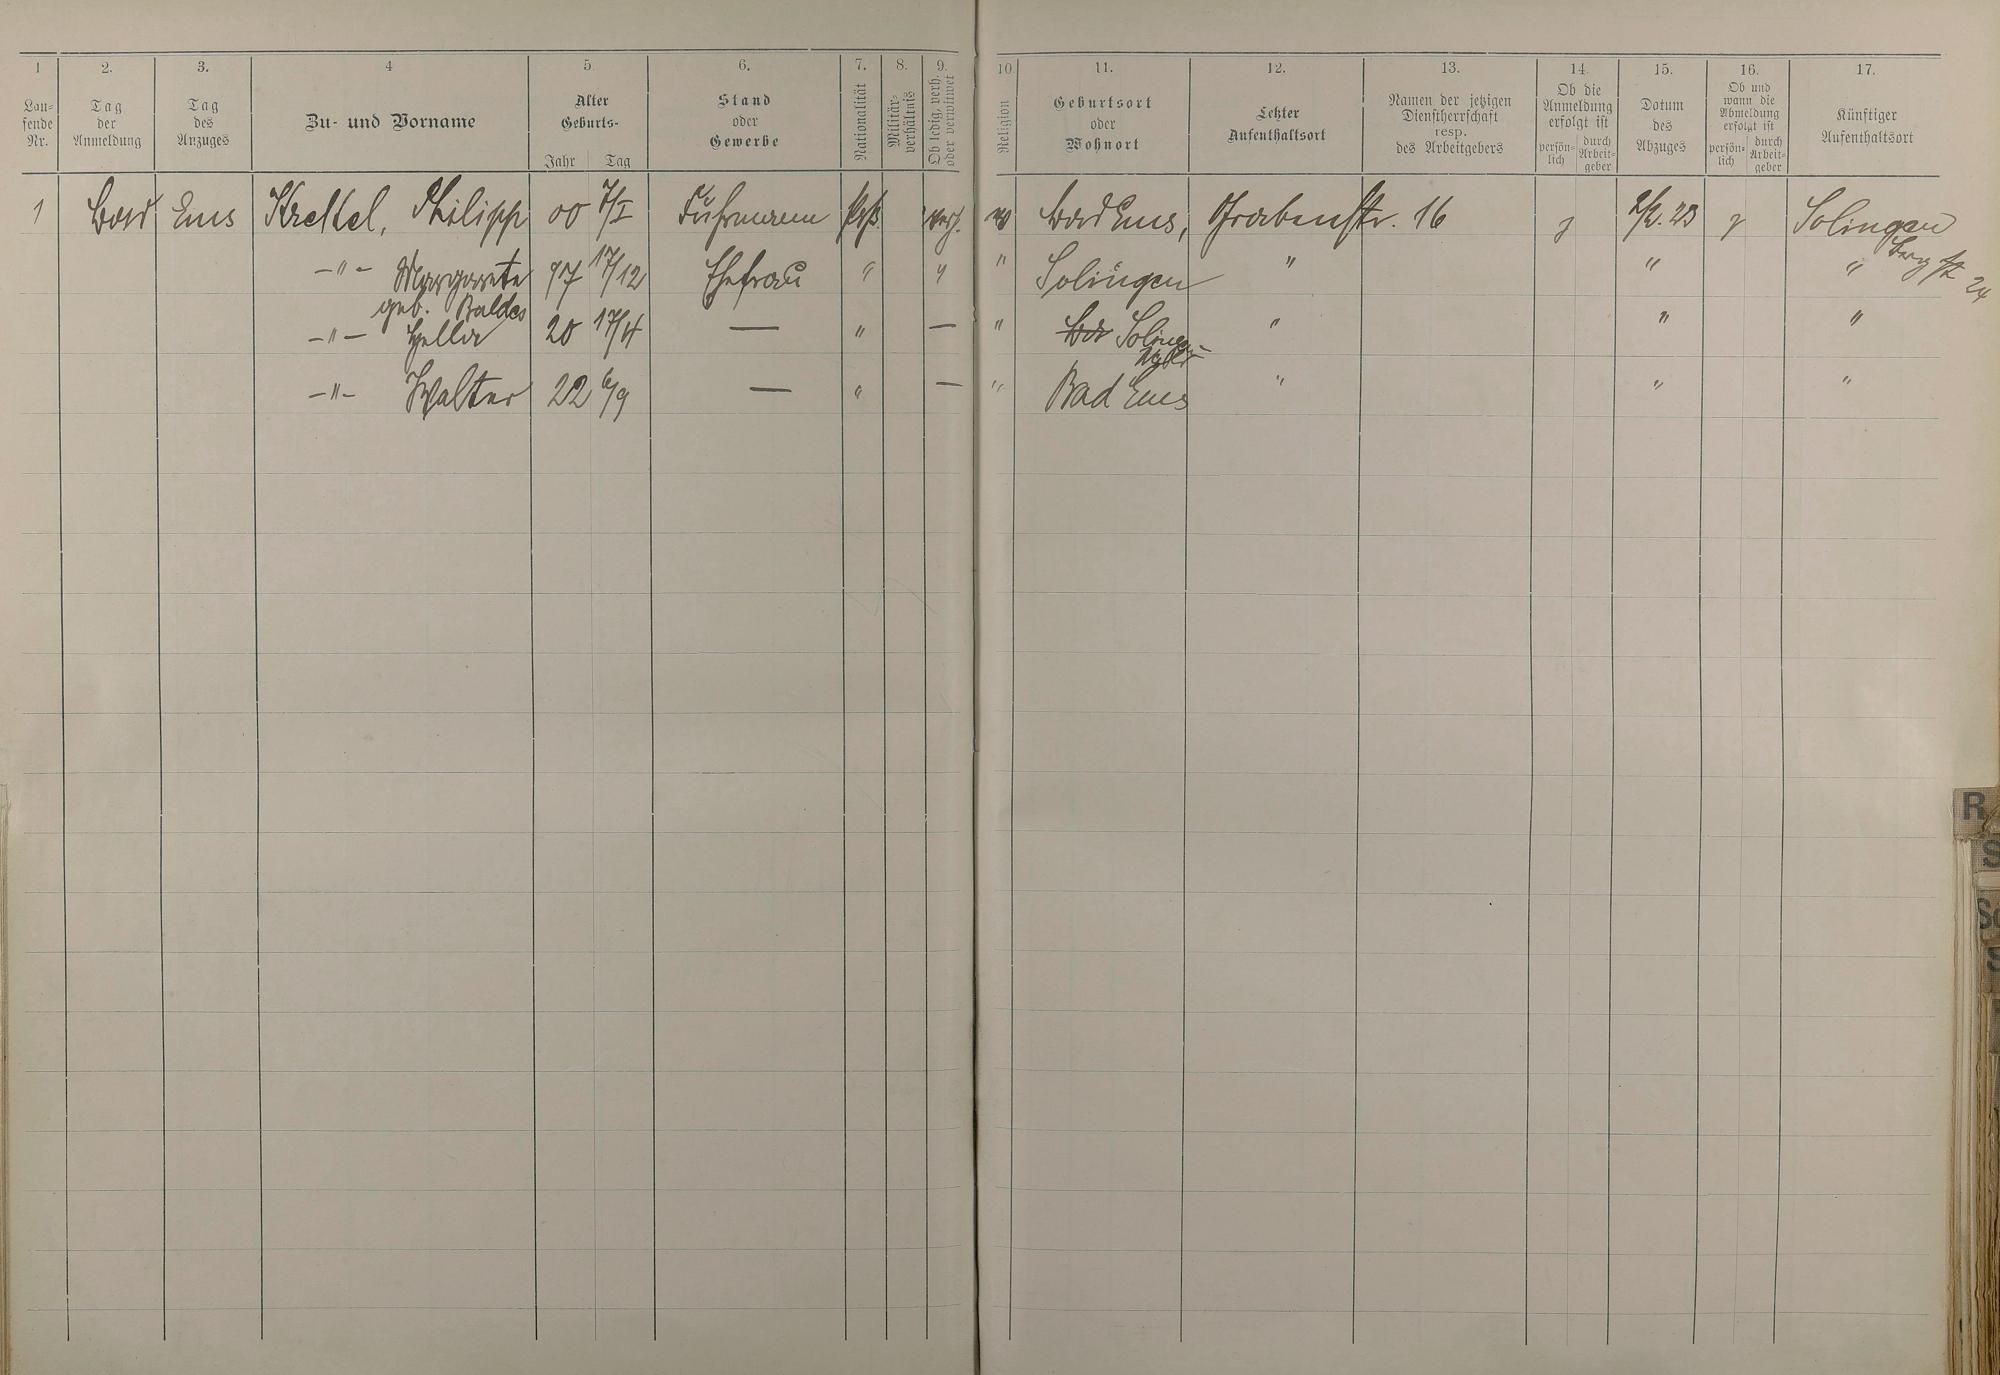 1 2. 3. 4 5. 6. 7. 8. 9. 10. 11. 12. 13. 14. 15. 16. 17.
Lau-
fende
Nr.
Tag
der
Anmeldung
Tag
des
Anzuges
Zu- und Vorname
Alter
Geburts-
Jahr Tag
Stand
oder
Gewerbe
Nationalität
Militär-
verhältnis
Ob ledig, verh.
oder verwitwet
Religion
Geburtsort
oder
Wohnort
Letzter
Aufenthaltsort
Namen der jetzigen
Dienstherrschaft
resp.
des Arbeitgebers
Ob die
Anmeldung
erfolgt ist
persön-
lich
durch
Arbeit-
geber
Datum
des
Abzuges
Ob und
wann die
Abmeldung
erfolgt ist
persön-
lich
durch
Arbeit-
geber
Künftiger
Aufenthaltsort
1 Bad Ems Krekel, Philipp 00 7/I Fuhrmann Prß. verh. Bad Ems, Grabenstr. 16 23 Solingen
-"- Margarete 97 17/12 Ehefrau " " " Solingen " " "
geb. Baldes
-"- Hella 20 17/4 — " — " Solingen " " "
-"- Walter 22 6/9 — " — " Bad Ems " " "
24
R
S
Sc
S